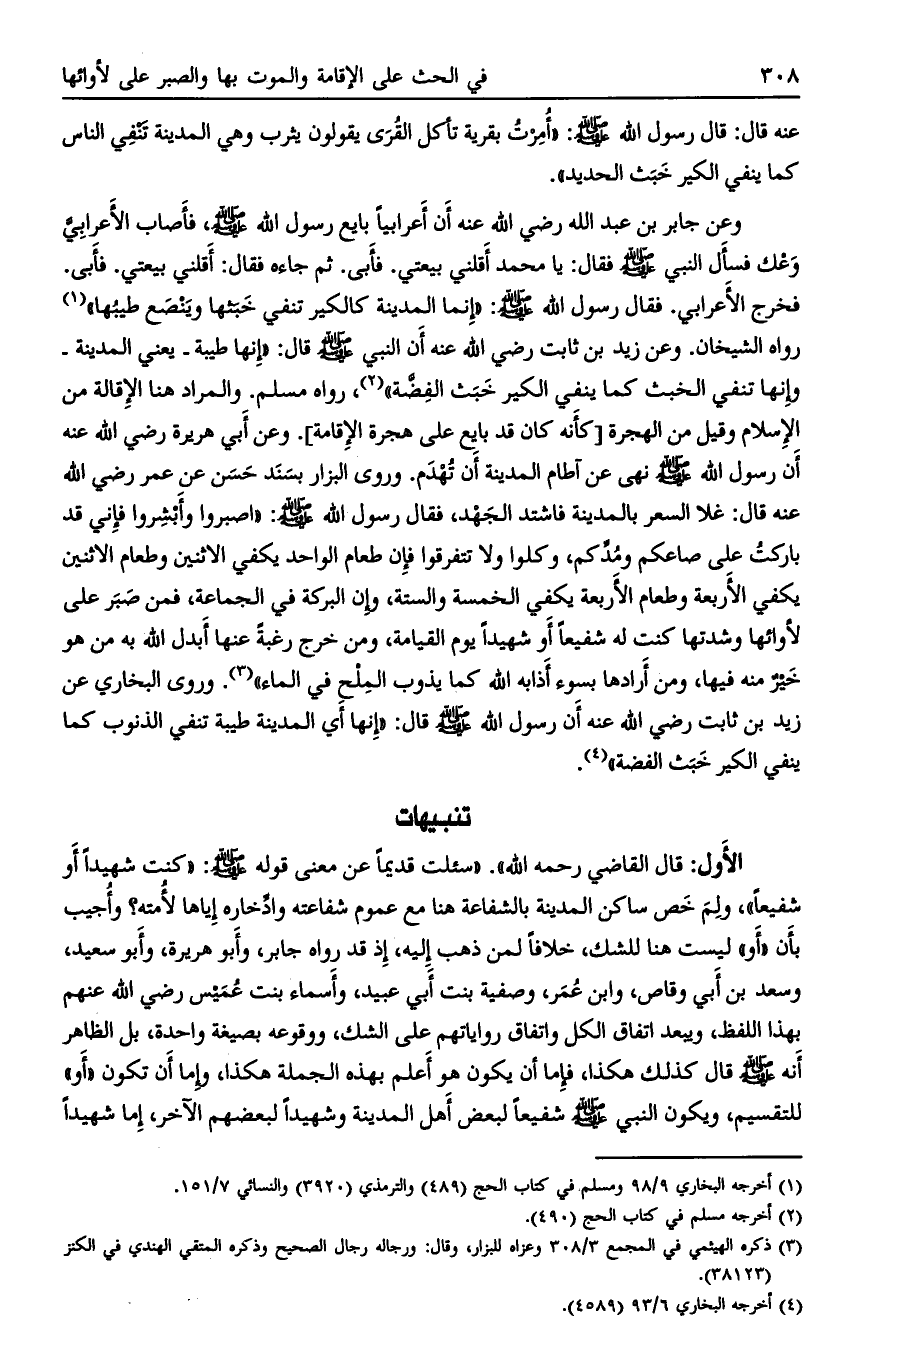 ٣٠٨ في الحث على الإقامة والموت بها والصبر على لأوائها
عنه قال: قال رسول الله ﷺ: «أُمِرْتُ بقرية تأكل القُرَى يقولون يثرب وهي المدينة تَنْفِي الناس
كما ينفي الكير خَبَث الحديد».
وعن جابر بن عبد الله رضي الله عنه أَن أَعرابياً بايع رسول الله ﷺ، فأَصاب الأَعرابِيَّ
وَعْك فسأَل النبي ﷺ فقال: يا محمد أَقلني بيعتي. فأَبى. ثم جاءه فقال: أَقلني بيعتي. فأَبى.
فخرج الأَعرابي. فقال رسول الله ﷺ: «إِنما المدينة كالكير تنفي خَبَثها ويَنْصَع طيبُها»(١)
رواه الشيخان. وعن زيد بن ثابت رضي الله عنه أَن النبي ﷺ قال: «إِنها طيبة ـ يعني المدينة ـ
وإِنها تنفي الخبث كما ينفي الكير خَبَث الفِضَّة»(٢)، رواه مسلم. والمراد هنا الإِقالة من
الإِسلام وقيل من الهجرة [كأَنه كان قد بايع على هجرة الإِقامة]. وعن أَبي هريرة رضي الله عنه
أَن رسول الله ﷺ نهى عن آطام المدينة أَن تُهْدَم. وروى البزار بسَنَد حَسَن عن عمر رضي الله
عنه قال: غلا السعر بالمدينة فاشتد الجَهْد، فقال رسول الله ﷺ: «اصبروا وأَبْشِروا فإِني قد
باركتُ على صاعكم ومُدِّكم، وكلوا ولا تتفرقوا فإِن طعام الواحد يكفي الاثنين وطعام الاثنين
يكفي الأَربعة وطعام الأَربعة يكفي الخمسة والستة، وإِن البركة في الجماعة، فمن صَبَر على
لأوائها وشدتها كنت له شفيعاً أَو شهيداً يوم القيامة، ومن خرج رغبةً عنها أَبدل الله به من هو
خَيْرٌ منه فيها، ومن أَرادها بسوء أَذابه الله كما يذوب المِلْح في الماء»(٣). وروى البخاري عن
زيد بن ثابت رضي الله عنه أَن رسول الله ﷺ قال: «إِنها أَي المدينة طيبة تنفي الذنوب كما
ينفي الكير خَبَث الفضة»(٤).
تنبيهات
الأَول: قال القاضي رحمه الله». «سئلت قديماً عن معنى قوله ﷺ: «كنت شهيداً أَو
شفيعاً»، ولِمَ خَص ساكن المدينة بالشفاعة هنا مع عموم شفاعته وادِّخاره إِياها لأُمته؟ وأُجيب
بأن «أَو» ليست هنا للشك، خلافاً لمن ذهب إِليه، إِذ قد رواه جابر، وأَبو هريرة، وأَبو سعيد،
وسعد بن أَبي وقاص، وابن عُمَر، وصفية بنت أَبي عبيد، وأَسماء بنت عُمَيْس رضي الله عنهم
بهذا اللفظ، ويبعد اتفاق الكل واتفاق رواياتهم على الشك، ووقوعه بصيغة واحدة، بل الظاهر
أَنه ﷺ قال كذلك هكذا، فإِما أن يكون هو أَعلم بهذه الجملة هكذا، وإِما أَن تكون «أَو»
للتقسيم، ويكون النبي ﷺ شفيعاً لبعض أَهل المدينة وشهيداً لبعضهم الآخر، إِما شهيداً
(١) أخرجه البخاري ٩٨/٩ ومسلم في كتاب الحج (٤٨٩) والترمذي (٣٩٢٠) والنسائي ١٥١/٧.
(٢) أخرجه مسلم في كتاب الحج (٤٩٠).
(٣) ذكره الهيثمي في المجمع ٣٠٨/٣ وعزاه للبزار، وقال: ورجاله رجال الصحيح وذكره المتقي الهندي في الكنز
(٣٨١٢٣).
(٤) أخرجه البخاري ٩٣/٦ (٤٥٨٩).